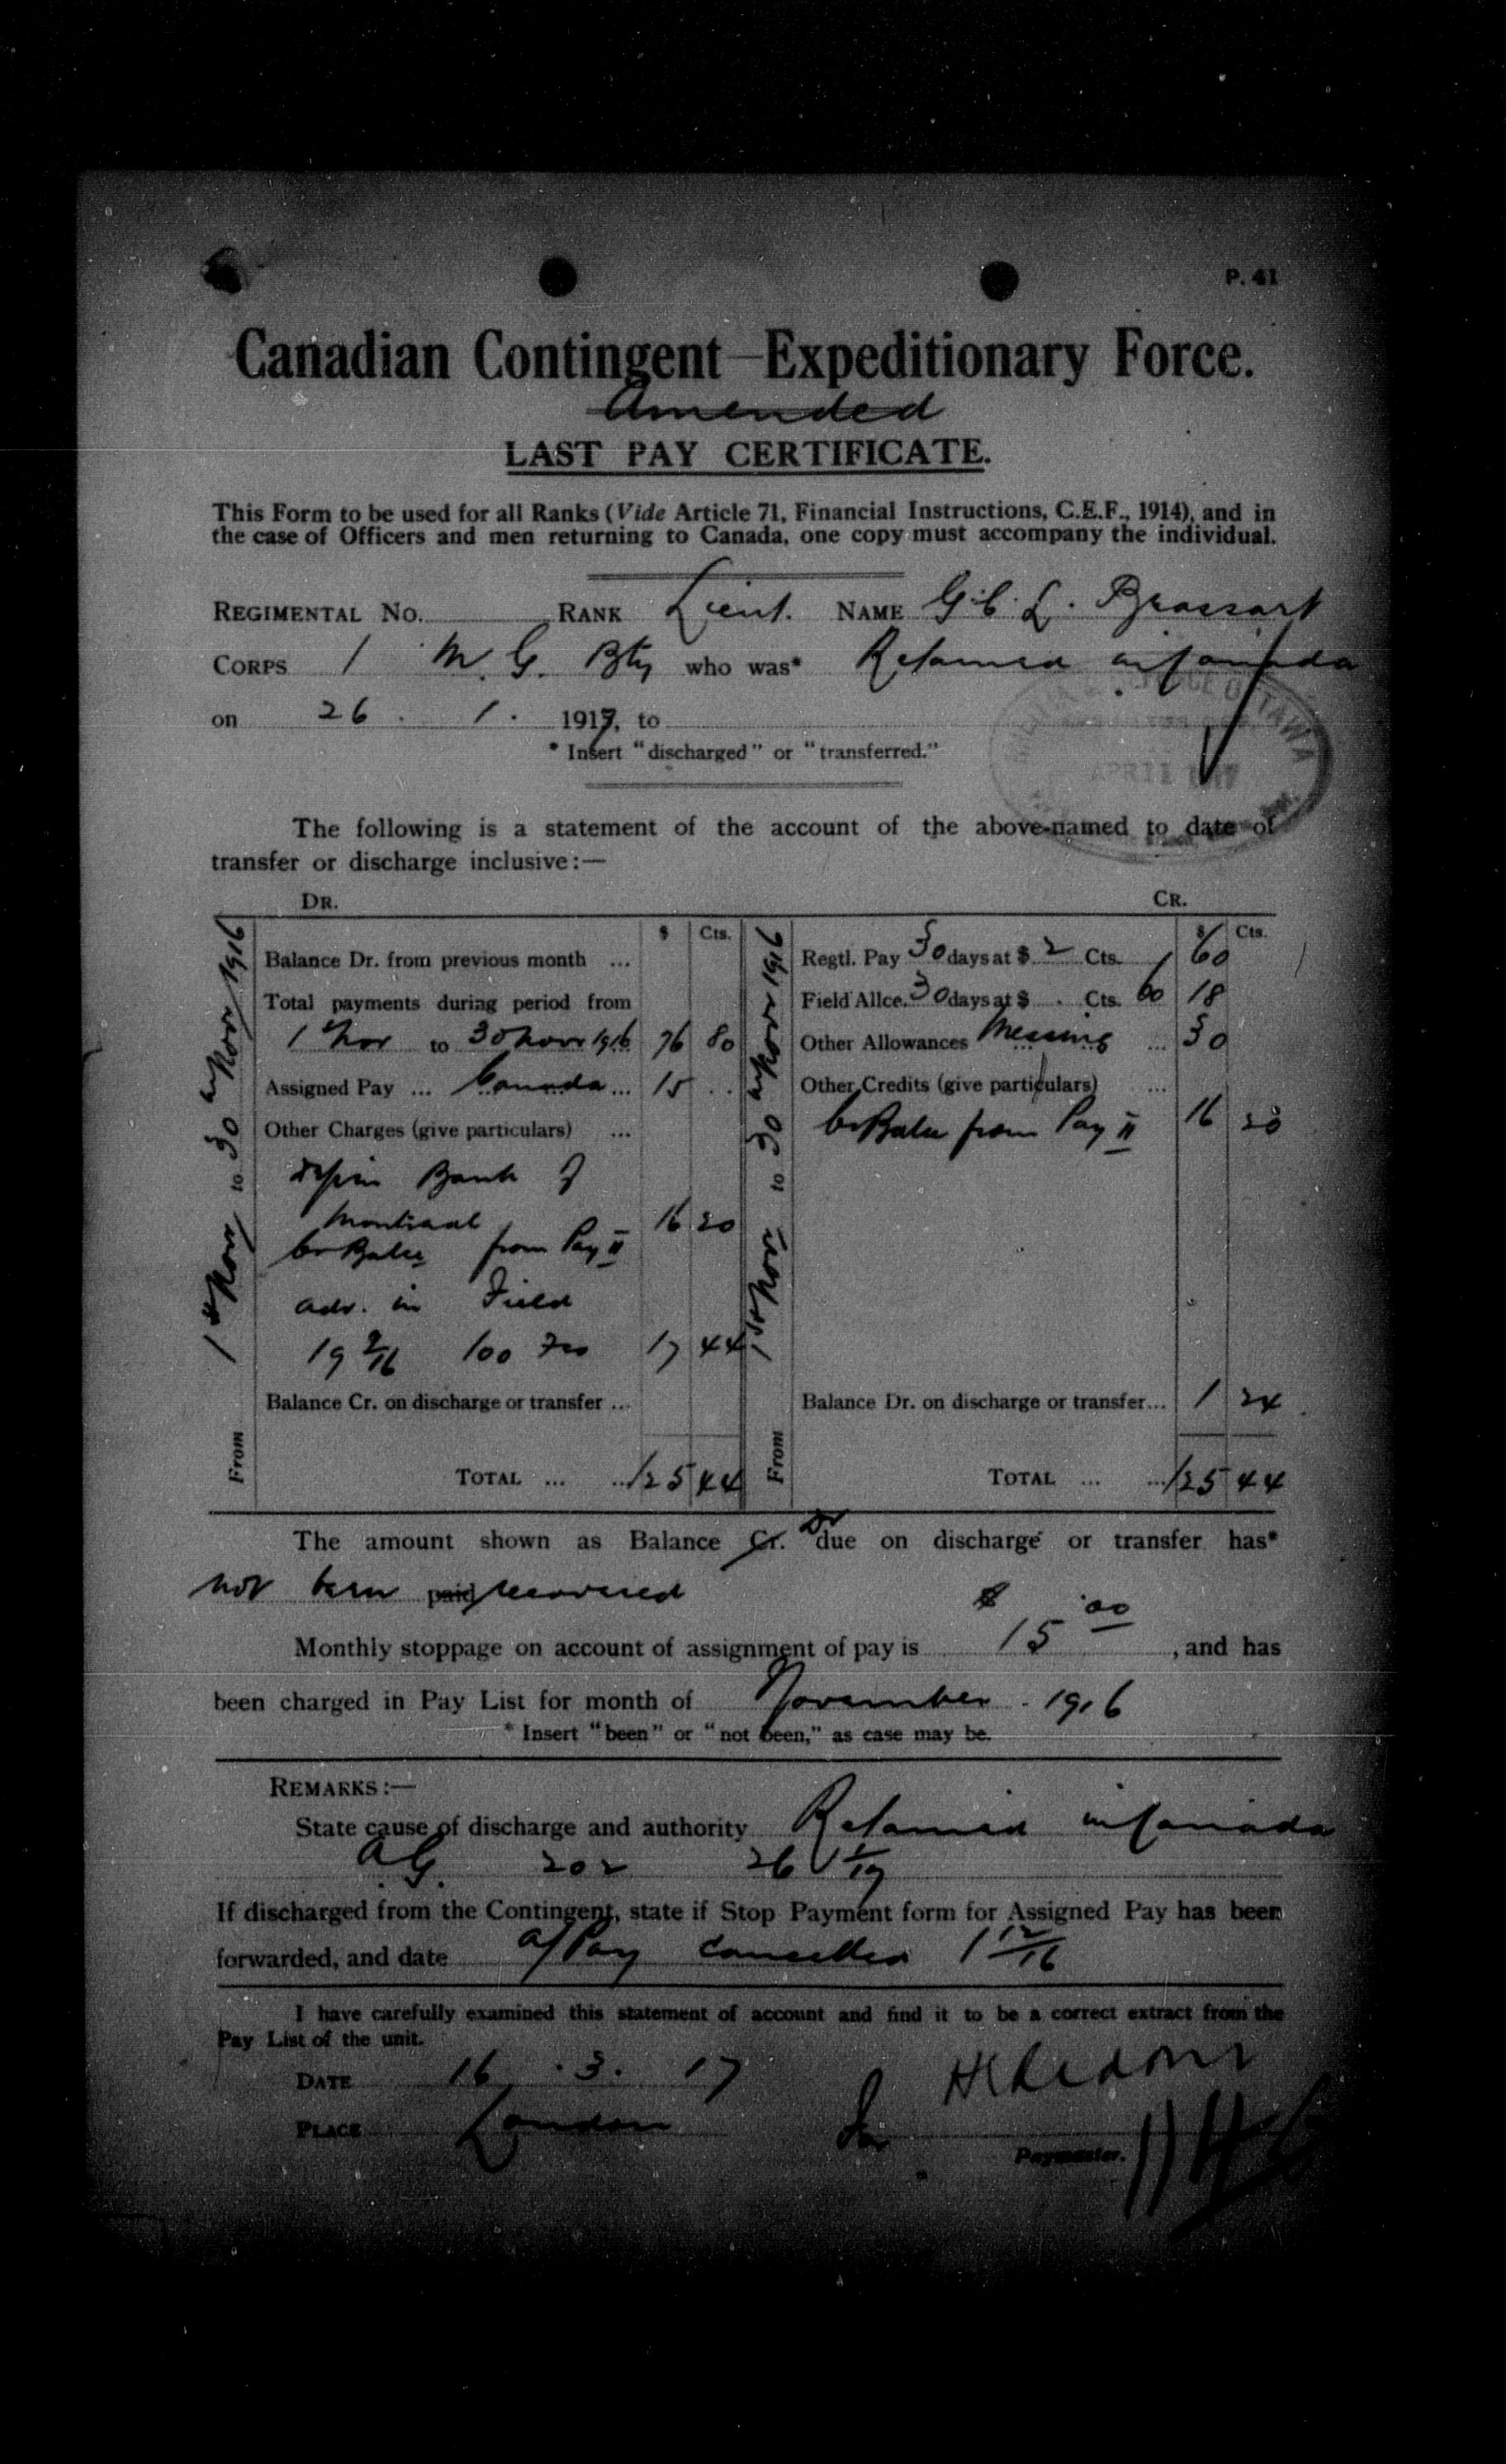 P. 41
Canadian Contingent Expeditionary Force.
Amended
LAST PAY CERTIFICATE.
This Form to be used for all Ranks (Vide Article 71, Financial Instructions, C.E.F., 1914), and in
the case of Officers and men returning to Canada, one copy must accompany the individual.
REGIMENTAL NO. RANK Lieut. NAME G. C. L. Brossart
CORPS 1 M. G. Bty who was* Retained in Canada
on 26. 1. 1917, to
* Insert "discharged" or "transferred."
APRIL 1917
OTTAWA
The following is a statement of the account of the above-named to date of
transfer or discharge inclusive:—
DR. CR.
$ Cts. $ Cts.
Balance Dr. from previous month ... Regtl. Pay 30 days at $ 2 Cts. 60
Total payments during period from Field Allce. 30 days at $ . Cts. 60 18
1st Nov to 30 Nov 1916 76 80 Other Allowances Messing ... 30
Assigned Pay ... Canada ... 15 .. Other Credits (give particulars) ...
Other Charges (give particulars) ... Cr Balce from Pay II 16 20
Bank of
Montreal
Cr Balce from Pay II 16 20
adv. in Field
19 9/16 100 Frs 17 44
Balance Cr. on discharge or transfer ... Balance Dr. on discharge or transfer... 1 24
TOTAL ... ... 125 44 TOTAL ... ... 125 44
From 1st Nov to 30th Nov 1916
From 1st Nov to 30th Nov 1916
The amount shown as Balance Cr. Dr due on discharge or transfer has*
not been paid recovered
Monthly stoppage on account of assignment of pay is $ 15 00, and has
been charged in Pay List for month of November 1916
* Insert "been" or "not been," as case may be.
REMARKS:—
State cause of discharge and authority Retained in Canada
A.G. 202 26 1/17
If discharged from the Contingent, state if Stop Payment form for Assigned Pay has been
forwarded, and date a/Pay cancelled 1 12/16
I have carefully examined this statement of account and find it to be a correct extract from the
Pay List of the unit.
DATE 16 . 3. 17
PLACE London for
Paymaster.